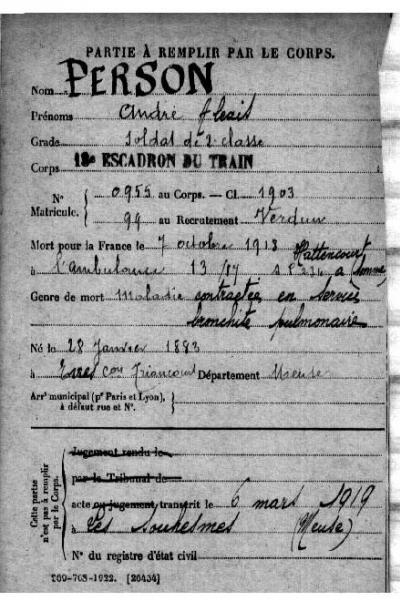 PARTIE À REMPLIR PAR LE CORPS.
Nom PERSON
Prénoms André
Grade Soldat de 2e classe
Corps 18e ESCADRON DU TRAIN
N° Matricule. { 0955 au Corps. — Cl. 1903
99 au Recrutement Verdun
Mort pour la France le 7 octobre 1918 Hattencourt
à l'ambulance 13/17 Somme
Genre de mort Maladie contractée en service
bronchite pulmonaire
Né le 28 Janvier 1883
à con Triaucourt Département Meuse
Arrt municipal (pr Paris et Lyon), à défaut rue et N°. }
Cette partie n'est pas à remplir par le Corps.
Jugement rendu le
par le Tribunal de
acte ou jugement transcrit le 6 mars 1919
à Les Souhesmes (Meuse)
N° du registre d'état civil
769-708-1922. [26434]